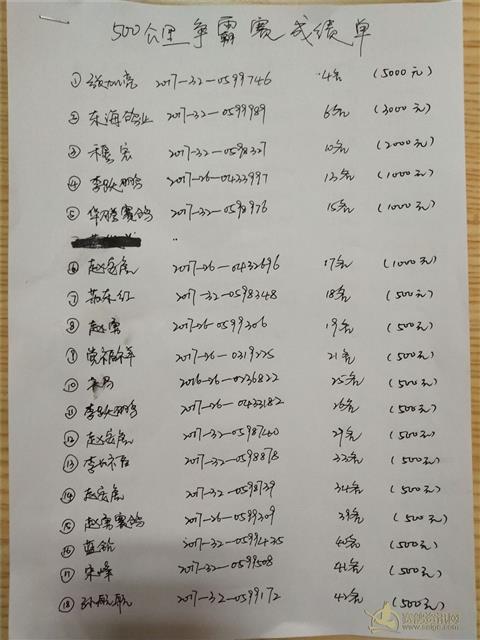 500公里争霸赛成绩单
① 张加亮 2017-32-0599746 4名 (5000元)
② 东海鸽业 2017-32-0599989 6名 (3000元)
③ 宏 2017-32-0598327 10名 (2000元)
④ 李跃鹏 2017-26-0433997 13名 (1000元)
⑤ 华腾赛鸽 2017-32-0598976 15名 (1000元)
⑥ 赵宏虎 2017-26-0432696 17名 (1000元)
⑦ 苏东红 2017-32-0598348 18名 (500元)
⑧ 赵雷 2017-26-0599306 19名 (500元)
⑨ 党福祥 2017-26-0319225 21名 (500元)
⑩ 2016-26-0236822 25名 (500元)
⑪ 李跃鹏 2017-26-0433182 26名 (500元)
⑫ 赵宏虎 2017-32-0598740 29名 (500元)
⑬ 李 2017-32-0598878 33名 (500元)
⑭ 赵宏虎 2017-32-0598739 34名 (500元)
⑮ 赵雷赛鸽 2017-26-0599309 39名 (500元)
⑯ 蓝鸽 2017-32-0599435 40名 (500元)
⑰ 宋峰 2017-32-0599508 41名 (500元)
⑱ 孙 2017-32-0599172 42名 (500元)
赛鸽资讯网
www.saign.com